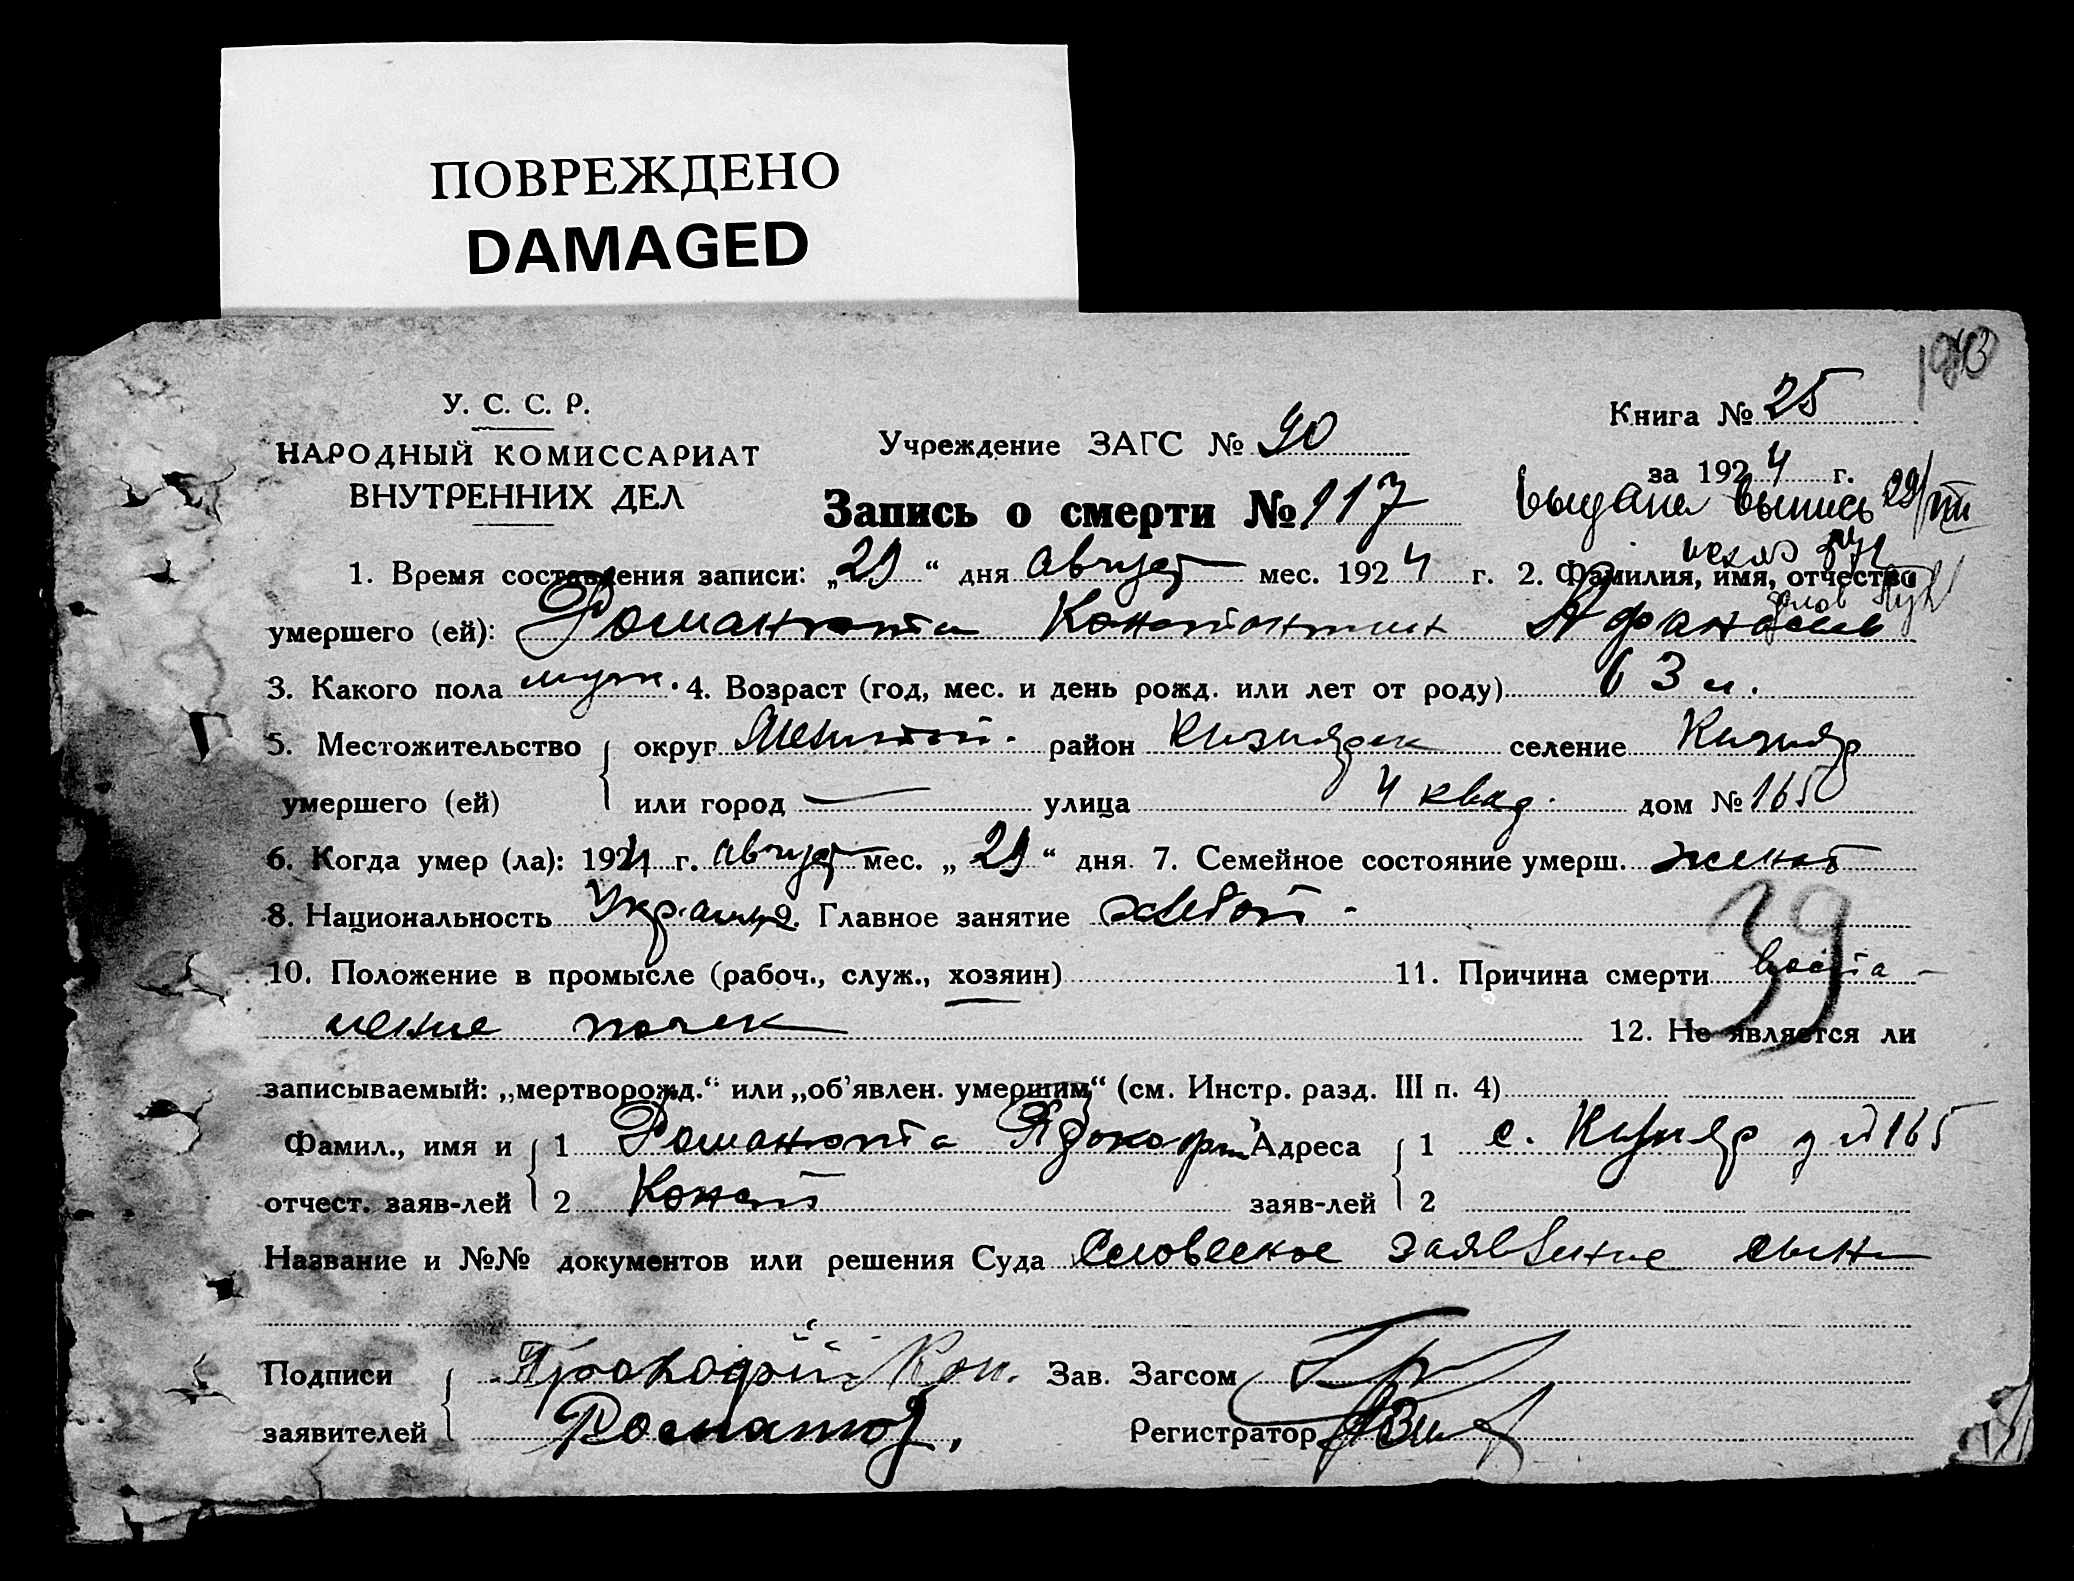 ПОВРЕЖДЕНО
DAMAGED
У. С. С. Р.
НАРОДНЫЙ КОМИССАРИАТ
ВНУТРЕННИХ ДЕЛ
Учреждение ЗАГС № 90
Запись о смерти № 117
Книга № 25
за 1924 г.
выдана выпись 29/VIII
1. Время составления записи: „29“ дня август мес. 1924 г. 2. Фамилия, имя, отчество
умершего (ей): Романюта Константин Афанасьев
3. Какого пола муж. 4. Возраст (год, мес. и день рожд. или лет от роду) 63 л.
5. Местожительство округ район Кизиярск селение Кизияр
умершего (ей) или город — улица 4 квад. дом № 165
6. Когда умер (ла): 1924 г. август мес. „29“ дня. 7. Семейное состояние умерш. женат
8. Национальность Украин. 9. Главное занятие хлебоп -
10. Положение в промысле (рабоч., служ., хозяин) 11. Причина смерти воспа-
ление почек 12. Не является ли
записываемый: „мертворожд.“ или „об'явлен. умершим“ (см. Инстр. разд. III п. 4)
Фамил., имя и 1 Романюта Адреса 1 с. Кизияр д 165
отчест. заяв-лей 2 Конст заяв-лей 2
Название и №№ документов или решения Суда Словесное заявление сына
39
Подписи Прокофий Кон. Зав. Загсом
заявителей Регистратор